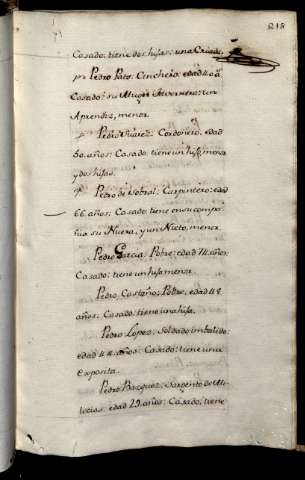 215
Casado: tiene dos hijas: una Criada.
Pedro Pato. Cinchero: edad 40 a.s
Casado: su Muger Tavernera: un
Aprendiz, menor.
Pedro Suarez: Cordonero, edad
50. años: Casado, tiene un hijo, menor
y dos hijas.
Pedro de Sobral. Carpintero: edad
66. años; Casado, tiene en su compa-
ñia su Nuera, y un Nieto, menor.
Pedro Garcia. Pobre: edad 74. años:
Casado: tiene un hijo menor.
Pedro Castaño; Pobre, edad 48
años: Casado, tiene una hija.
Pedro Lopez, Soldado imbalido:
edad 44. años: Casado: tiene una
Exposita.
Pedro Bazquez. Sargento de Mi-
licias. edad 29. años: Casado, tiene